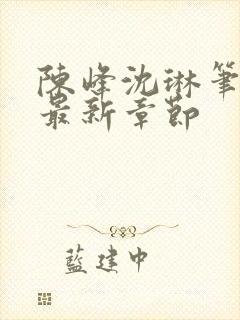 陳峰沈琳筆
最新章節
藍建中